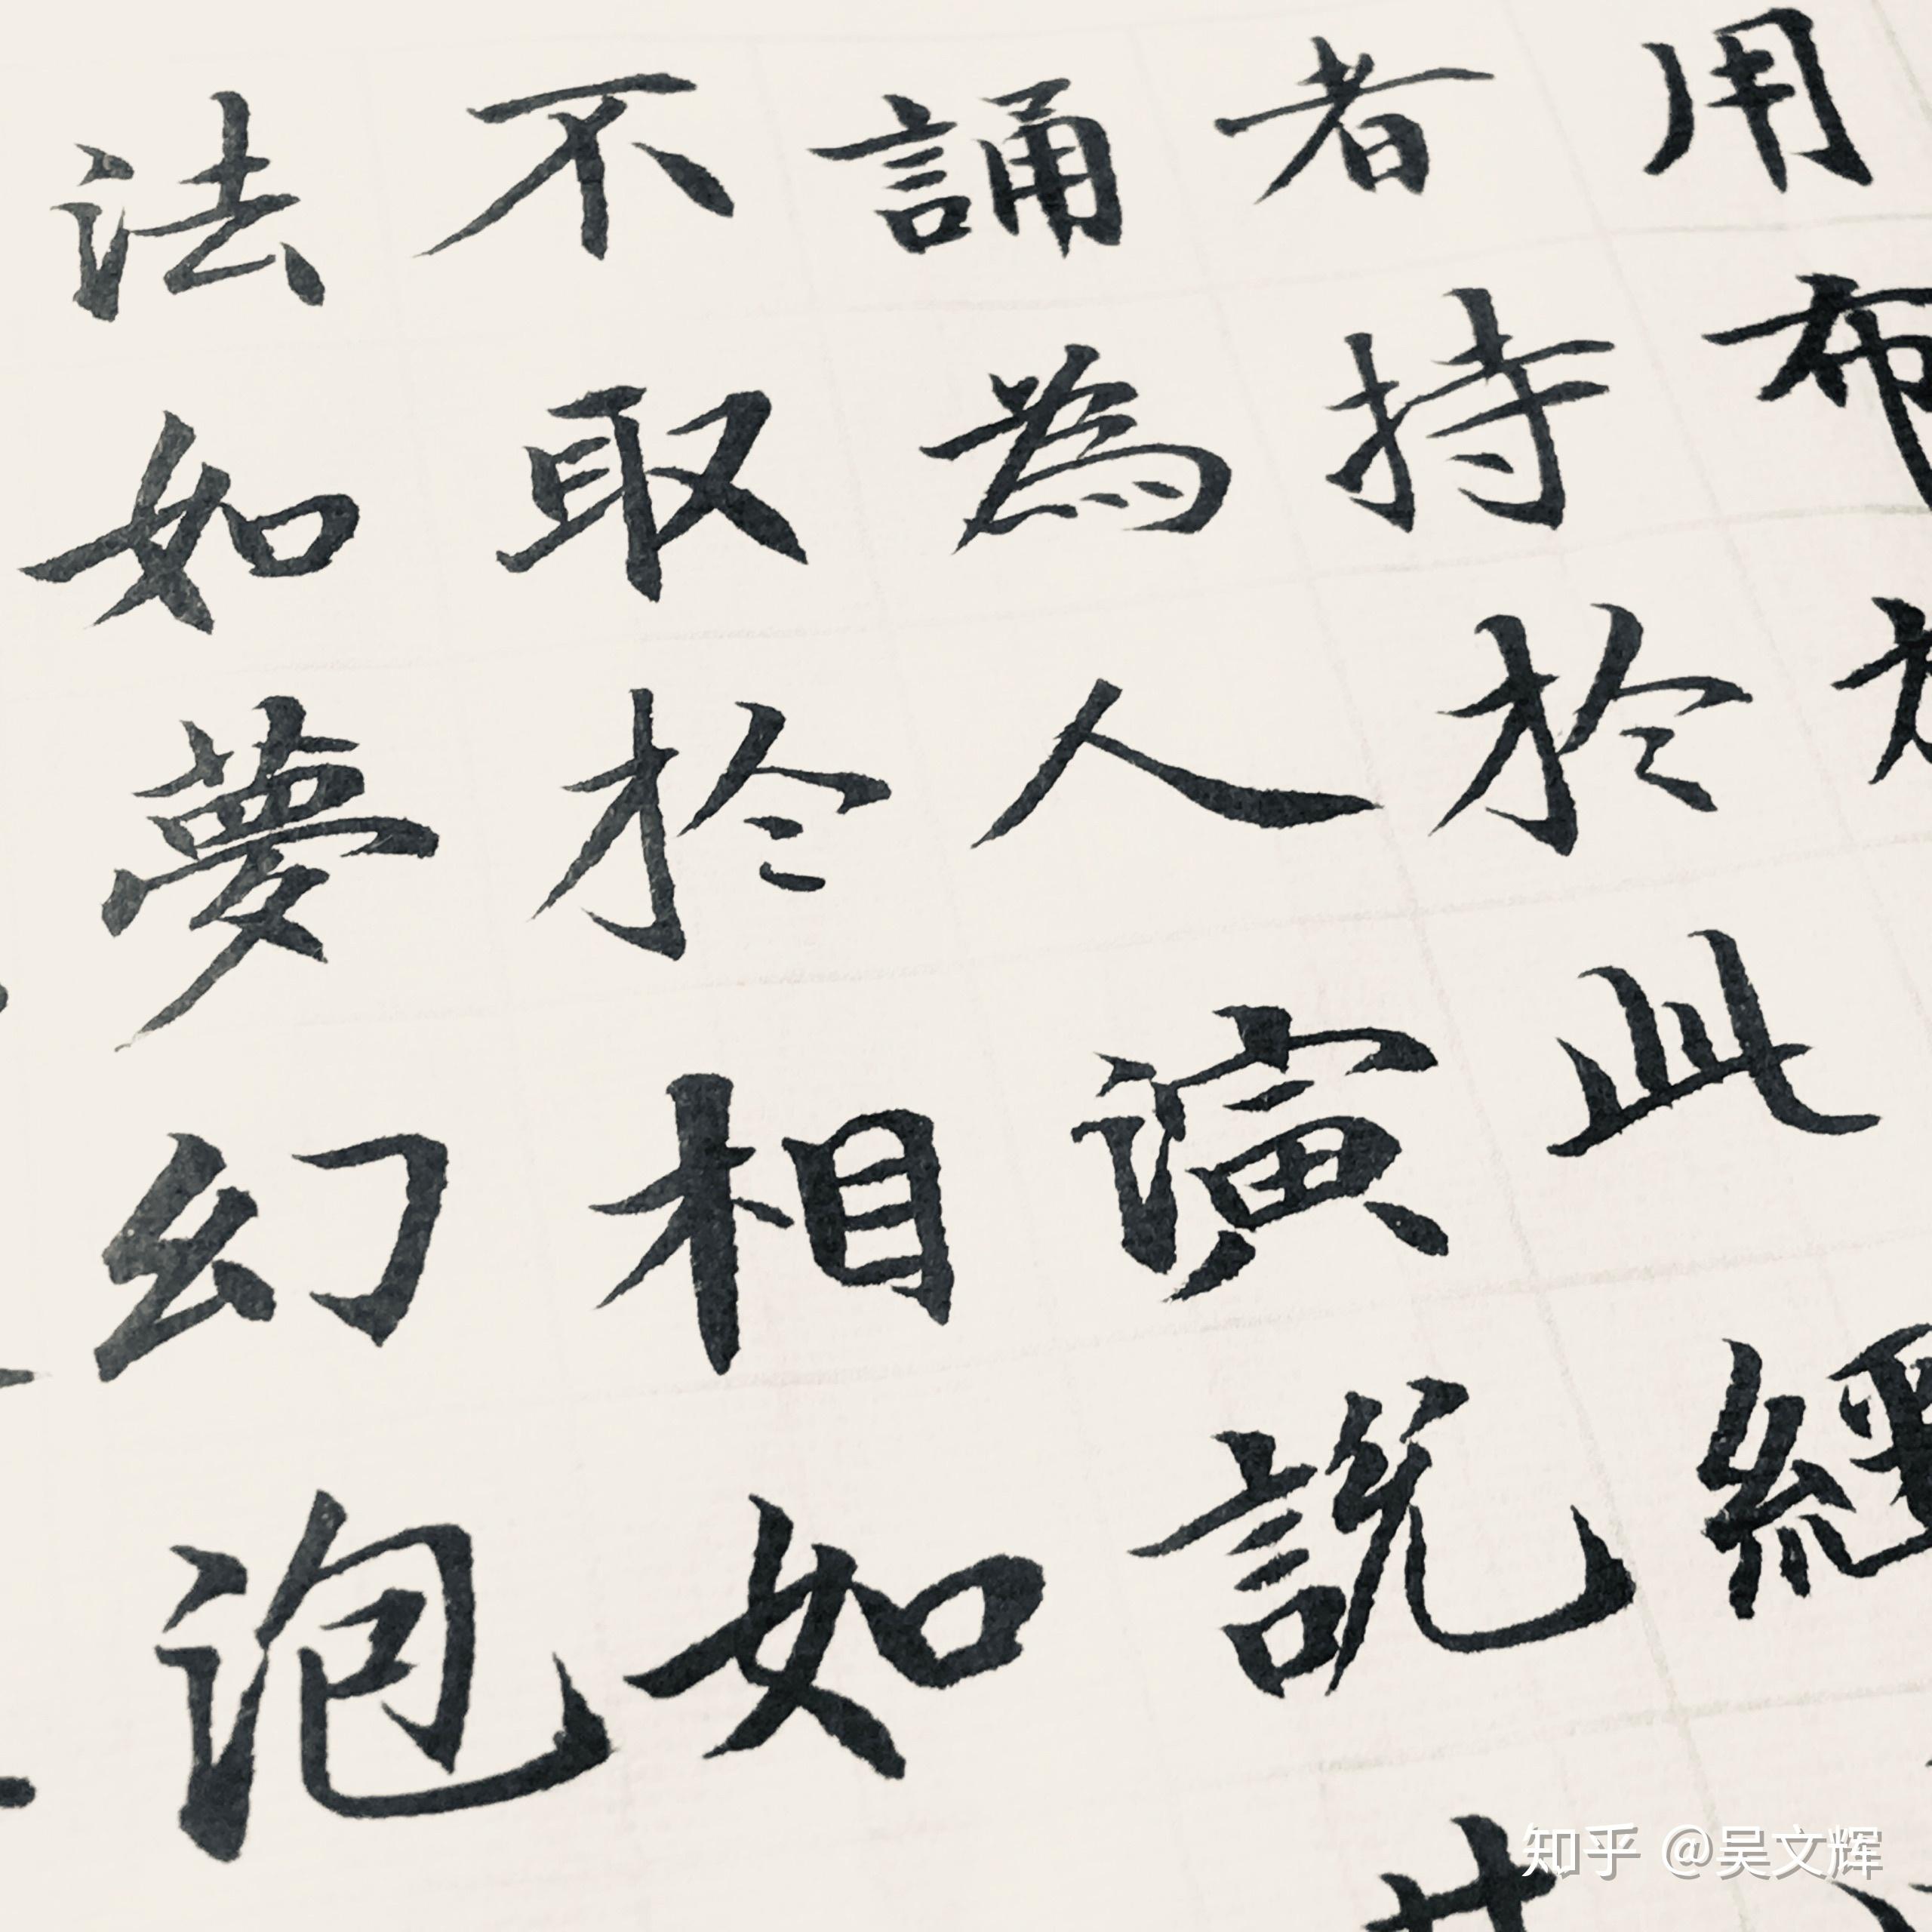 用布
者持於此經
誦為人演說
不取於相如
法如夢幻泡
知乎 @吴文辉